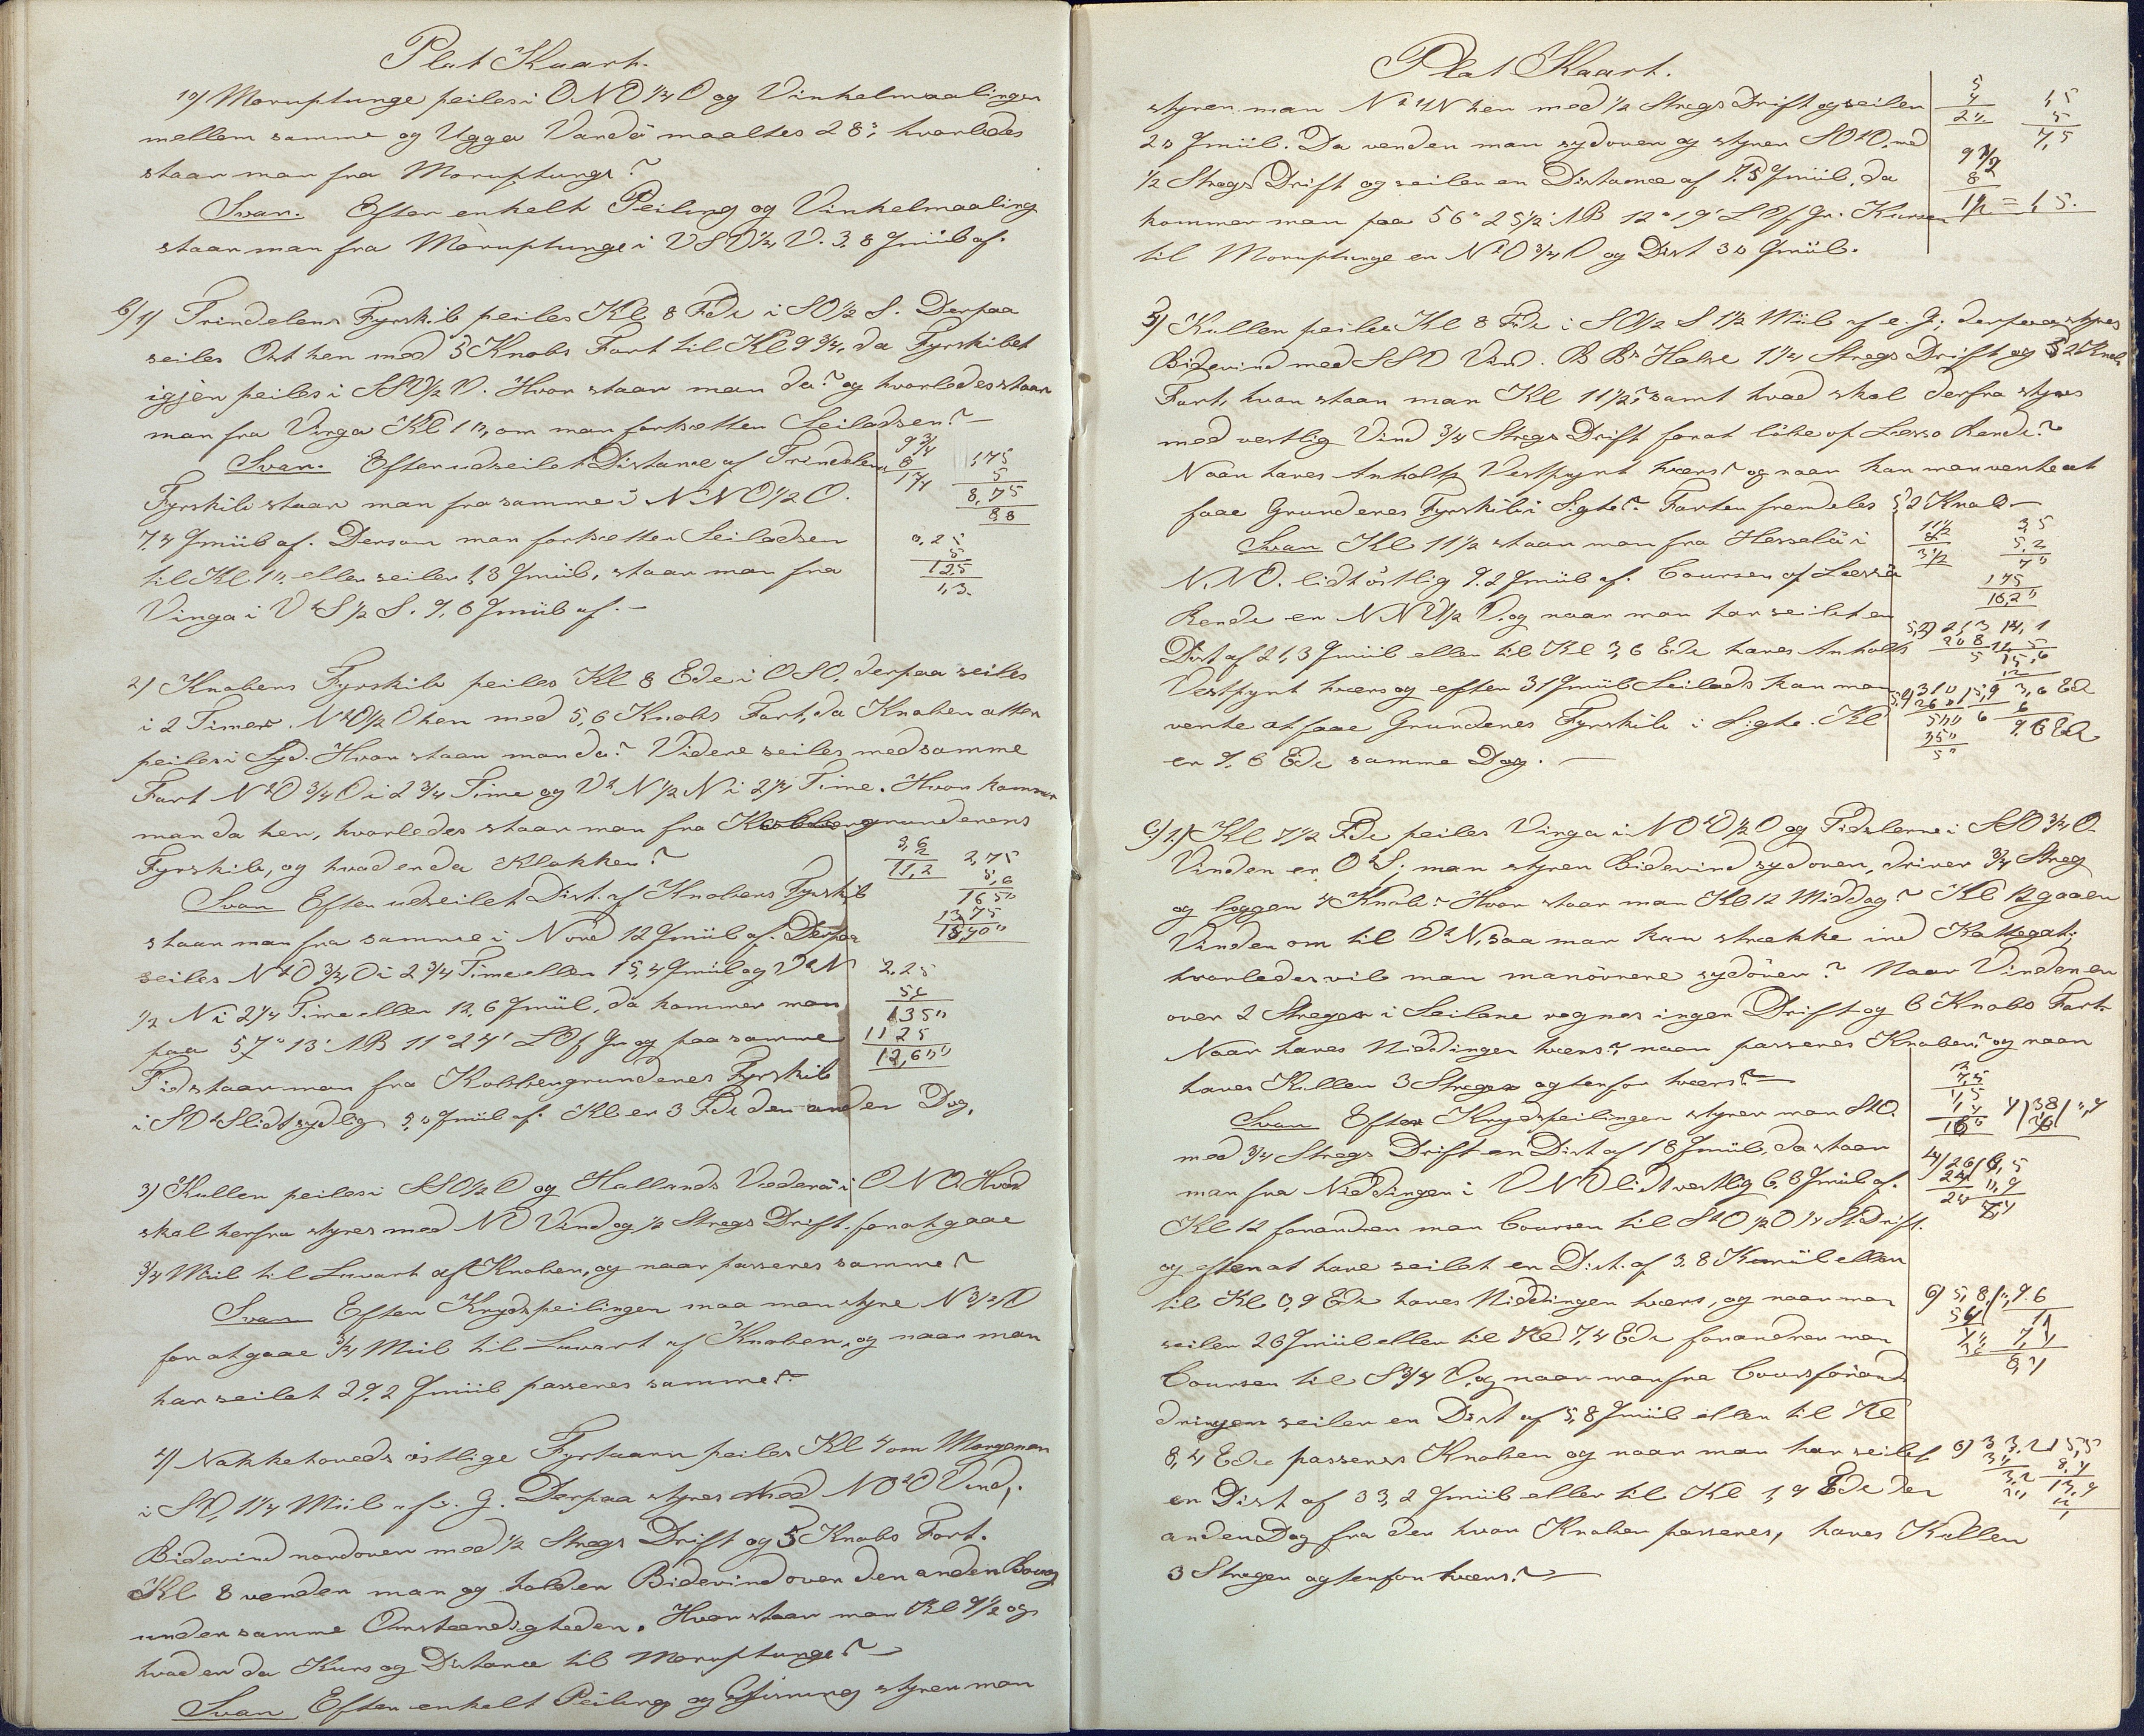 Plat Kaart.
10) Moruptunge peiles i ONO 1/4 O og Vinkelmaalingen
mellem samme og Ugga Vardö maaltes 28°, hvorledes
staar man fra Moruptunge?
Svar. Efter enkelt Peiling og Vinkelmaaling
staar man fra Moruptunge i VSV 1/4 V. 3,8 Qmiil af.
b) 1) Trindelens Fyrskib peiles Kl 8 Fdr i SO 1/2 S. Derpaa
seiles Ost hen med 5 Knobs Fart til Kl 9 3/4, da Fyrskibet
igjen peiles i SSV 1/2 V. Hvor staar man da? og hvorledes staar
man fra Vinga Kl 10, om man fortsætter Seiladsen? —
Svar. Efter udseilet Distance af Trindelens
Fyrskib staar man fra samme i NNO 1/2 O.
7,4 Qmiil af. Dersom man fortsætter Seiladsen
til Kl. 10, eller seiler 1,3 Qmiil, staar man fra
Vinga i VtS 1/2 S. 9,6 Qmiil af. —
9 3/4
8
1 3/4
1,75
5
8,75
8,8
0,25
5
125
1,3.
2) Knobens Fyrskib peiles Kl 8 Edr i OSO, derpaa seiles
i 2 Timer. NtO 1/2 O hen med 5,6 Knobs Fart, da Knoben atter
peiles i Syd. Hvor staar man da? Videre seiles med samme
Fart NtO 3/4 O i 2 3/4 Time og VtN 1/2 N i 2 1/4 Time. Hvor kommer
man da hen, hvorledes staar man fra Kobbergrundenens
Fyrskib, og hvad er da Klokken?
Svar Efter udseilet Dist. af Knobens Fyrskib
staar man fra samme i Nord 12 Qmiil af. Derpaa
seiles NtO 3/4 O i 2 3/4 Time eller 15,4 Qmiil og VtN
1/2 N i 2 1/4 Time eller 12,6 Qmiil, da kommer man
paa 57° 13' NB 11° 24' LOf Gr og paa samme
Tid staar man fra Kobbergrundenes Fyrskib
i SOtS lidt sydlig 5,0 Qmiil af. Kl er 3 Fdr den anden Dag.
5,6
2
11,2
2,75
5,6
1650
1375
15,400
2,25
5,6
1350
1125
12,600
3) Kullen peiles i SSO 1/2 O og Hallands Væderö i ONO. Hvad
skal herfra styres med NO Vind og 1/2 Stregs Drift. for at gaae
3/4 Miil til Luvart af Knoben, og naar passeres samme?
Svar Efter Krydspeilingen maa man styre N 3/4 V
for at gaae 3/4 Miil til Luvart af Knoben, og naar man
har seilet 29,2 Qmiil passeres samme?
4) Nakkehoveds östlige Fyrtaarn peiles Kl 4 om Morgenen
i SV, 1 1/4 Miil af e. G. Derpaa styres med NOtO Vind,
Bidevind nordover med 1/2 Stregs Drift og 5 Knobs Fart.
Kl 8 vender man og holder Bidevind over den anden Boug
under samme Omstændigheder. Hvor staar man Kl 9 1/2 og
hvad er da Kurs og Distance til Moruptunge? —
Svar Efter enkelt Peiling og Gisning styrer man
Plat Kaart.
styrer man NtVN hen med 1/2 Stregs Drift og seiler
20 Qmiil. Da vender man sydover og styrer SOtO, med
1/2 Stregs Drift og seiler en Distance af 7,5 Qmiil, da
kommer man paa 56° 25 1/2' NB 12° 19' LOf Gr. Kursen
til Moruptunge er NtO 3/4 O og Dist 30 Qmiil.
5
4
20
1,5
5
7,5
9 1/2
8
1 1/2 = 1,5.
5) Kullen peiles Kl 8 Fdr i SO 1/2 S 1 1/2 Miil af e. G; derpaa styres
Bidevind med SSV Vind. B Bs Halse 1 1/4 Stregs Drift og 5,2 Knobs
Fart, hvor staar man Kl 11 1/2, samt hvad skal derfra styres
med vestlig Vind 3/4 Stregs Drift for at löbe op Læssö Rende?
Naar haves Anholts Vestpynt tværs? og naar kan man vente at
faae Grundenes Fyrskib i Sigte? Farten fremdeles 5,2 Knob —
Svar Kl 11 1/2 staar man fra Hesselö i
N.NO. lidt östlig 9,2 Qmiil af. Coursen af Læssö
Rende er NNV 1/2 V, og naar man har seilet en
Dist af 21,3 Qmiil eller til Kl 3,6 Edr haves Anholts
Vestpynt tværs og efter 31 Qmiil Seilads kan man
vente at faae Grundenes Fyrskib i Sigte. Kl
er 9,6 Edr samme Dag. —
11 1/2
8
3 1/2
3,5
5,2
70
175
18,20
C) 1.) Kl 7 1/2 Fdr peiles Vinga i NOtO 1/2 O og Tidslerne i SSO 3/4 O.
Vinden er OtS; man styrer Bidevind sydover, driver 3/4 Streg
og logger 4 Knob. Hvor staar man Kl 12 Middag? Kl 12 gaaer
Vinden om til OtN, saa man kan strække ind Kattegat;
hvorledes vil man manövrere sydöver? Naar Vinden er
over 2 Streger i Seilene regnes ingen Drift og 6 Knobs Fart.
Naar haves Niddingen tværs?, naar passeres Knoben? og naar
haves Kullen 3 Streger agtenfor tværs? —
Svar Efter Krydspeilingen styrer man StO.
med 3/4 Stregs Drift en Dist af 18 Qmiil, da staar
man fra Niddingen i VNV lidt vestlig 6,8 Qmiil af.
Kl 12 forandrer man Coursen til StO 1/2 O 1/4 St. Drift.
og efter at have seilet en Dist. af 3,8 Kvmiil eller
til Kl 0,9 Edr haves Niddingen tværs, og naar man
seiler 26 Qmiil eller til Kl 7,4 Edr forandrer man
Coursen til S 3/4 V, og naar man fra Coursforan-
dringen seiler en Dist af 5,8 Qmiil eller til Kl
8,4 Edr passeres Knoben og naar man har seilet
en Dist af 33,2 Qmiil eller til Kl 1,9 Edr den
anden Dag fra der hvor Knoben passeres, haves Kullen
3 Streger agtenfor tværs? —